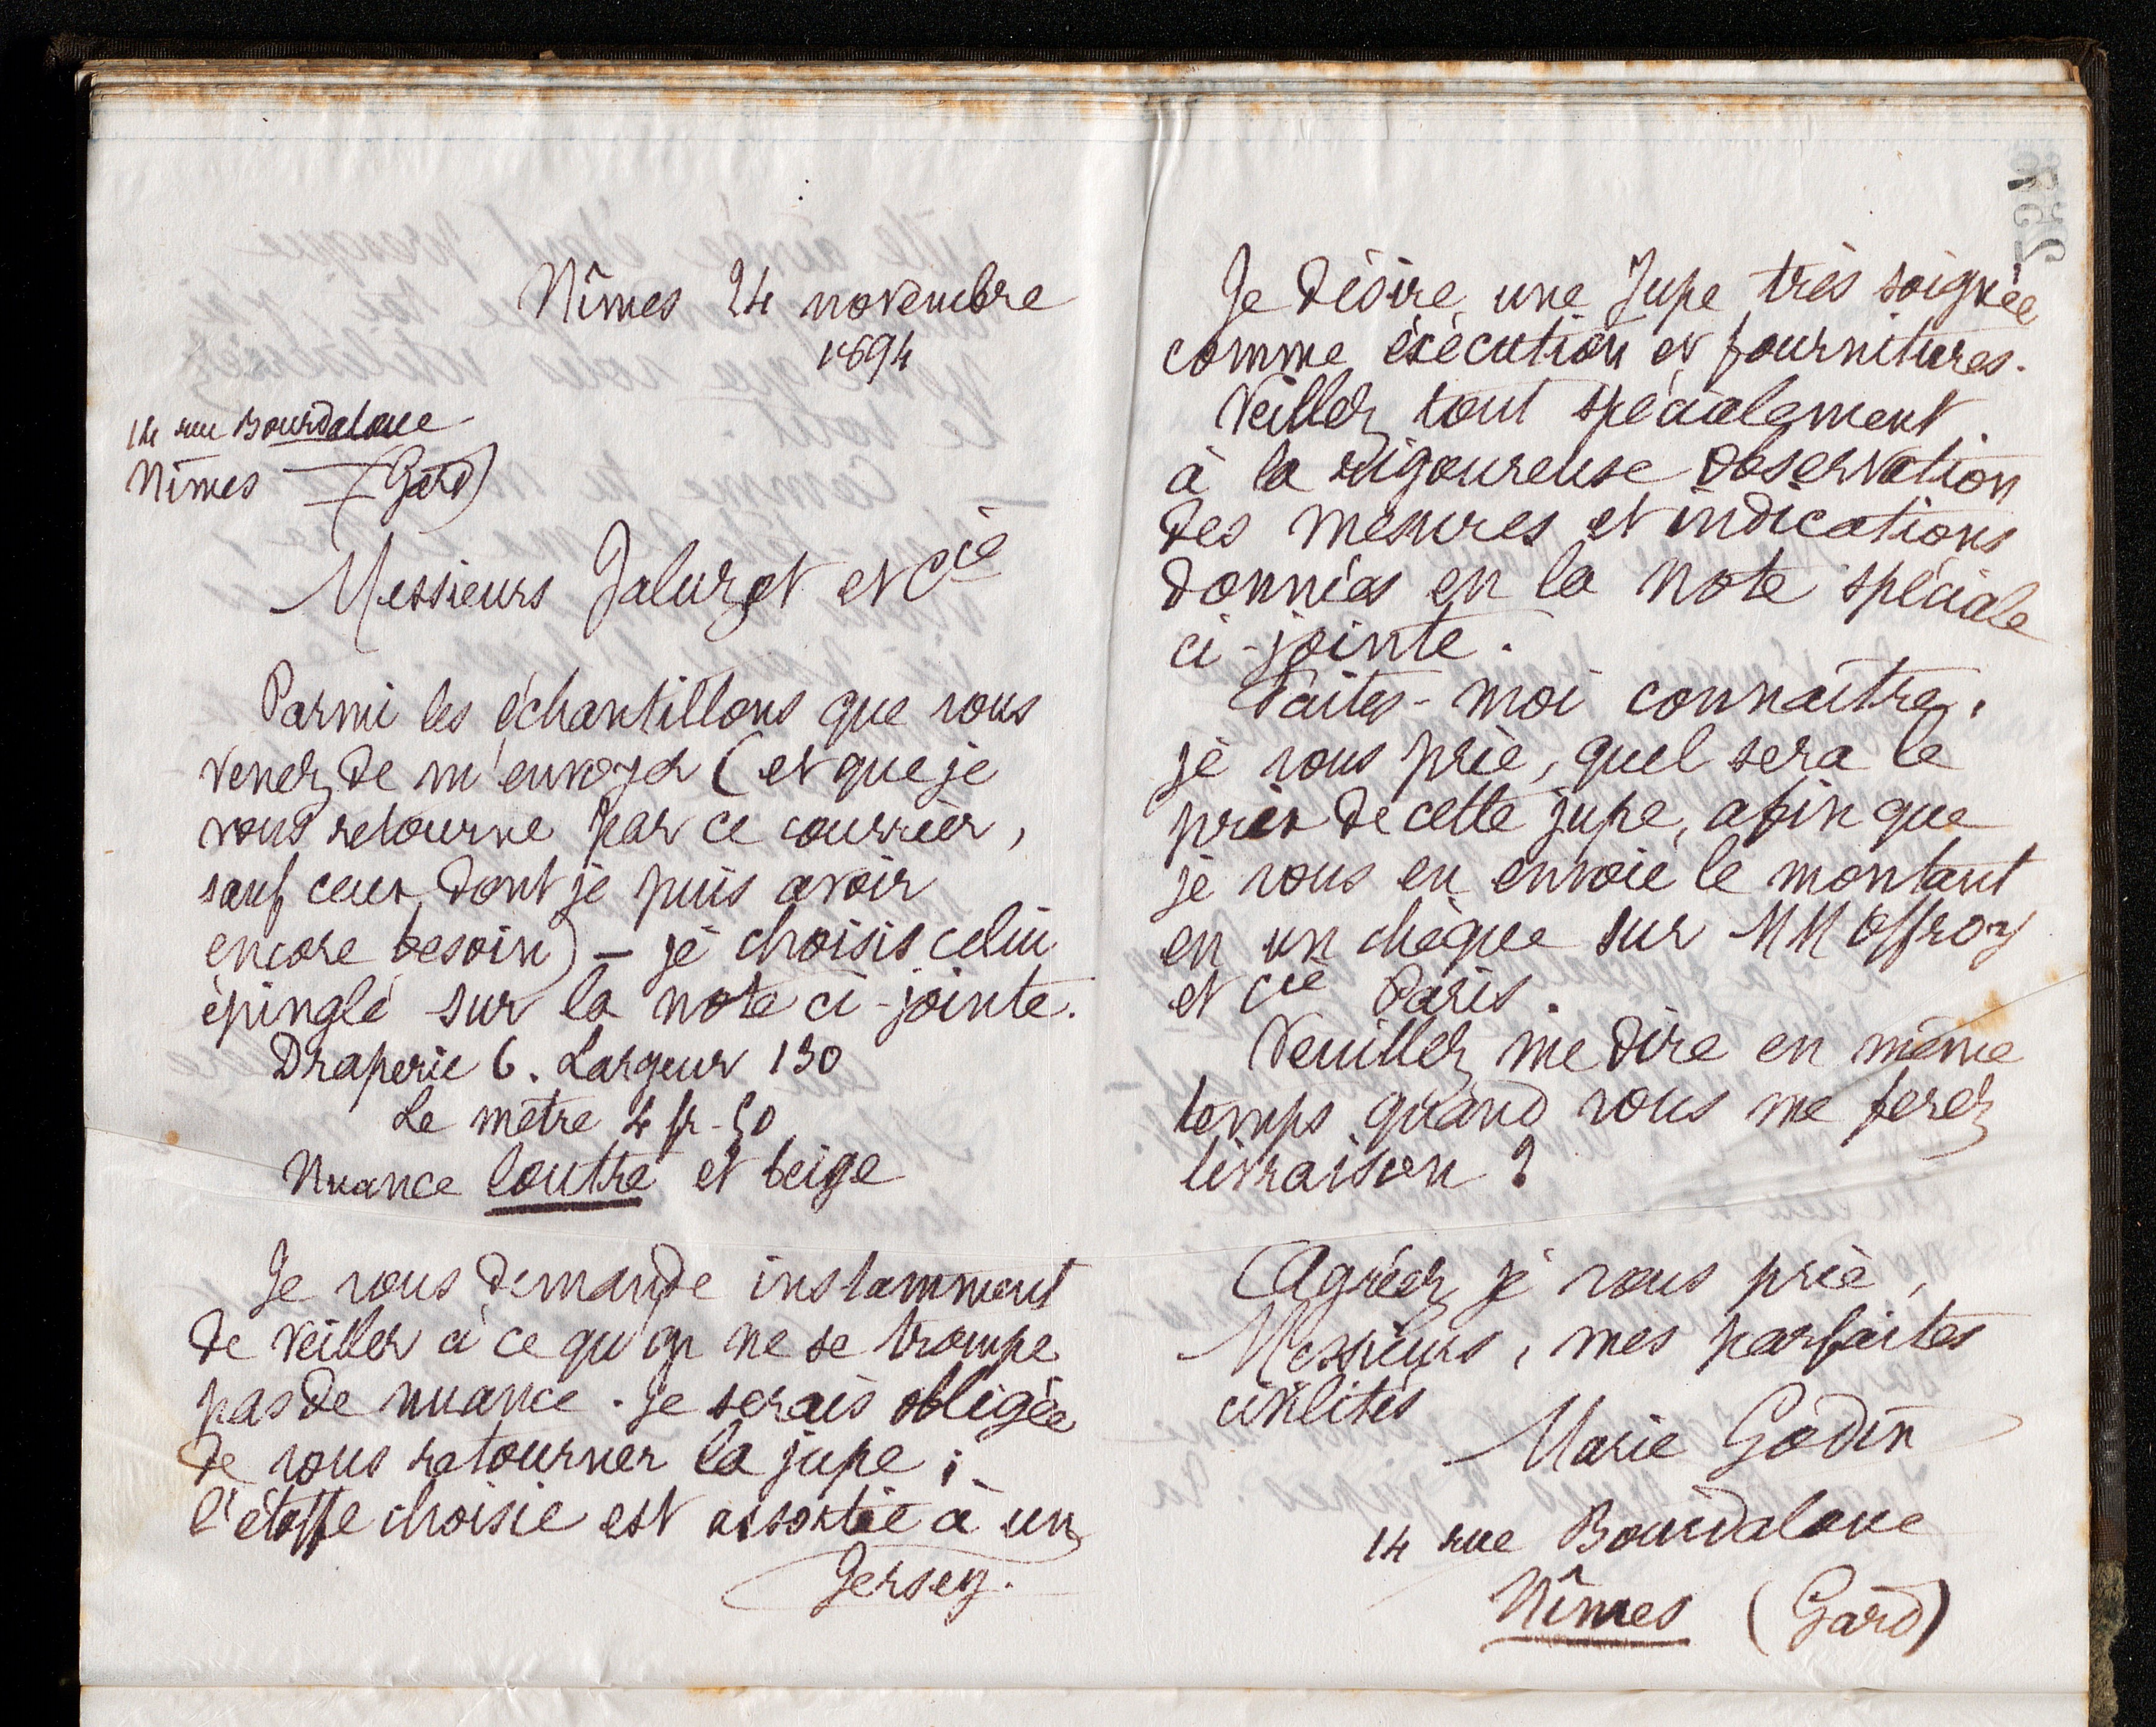 Nîmes 24 novembre
1894
14 rue Bourdaloue
Nîmes (Gard)
Messieurs Jaluzot et Cie
Parmi les échantillons que vous
venez de m'envoyer (et que je
vous retourne par ce courrier,
sauf ceux dont je puis avoir
encore besoin) – je choisis celui
épinglé sur la note ci-jointe.
Draperie 6. Largeur 130
Le mètre 4 fr-50
Nuance loutre et beige
Je vous demande instamment
de veiller à ce qu'on ne se trompe
pas de nuance. Je serais obligée
de vous retourner la jupe ;
l'étoffe choisie est assortie à un
Jersey.
Je désire une Jupe très soignée
comme éxécution et fournitures.
Veillez tout spécialement
à la rigoureuse observation
des mesures et indications
données en la note spéciale
ci-jointe.
Faites-moi connaître,
je vous prie, quel sera le
prix de cette jupe, afin que
je vous en envoie le montant
en un chèque sur MM Offroy
et Cie Paris.
Veuillez me dire en même
temps quand vous me ferez
livraison ?
Agréez je vous prie,
Messieurs, mes parfaites
civilités
Marie Godin
14 rue Bourdaloue
Nîmes (Gard)